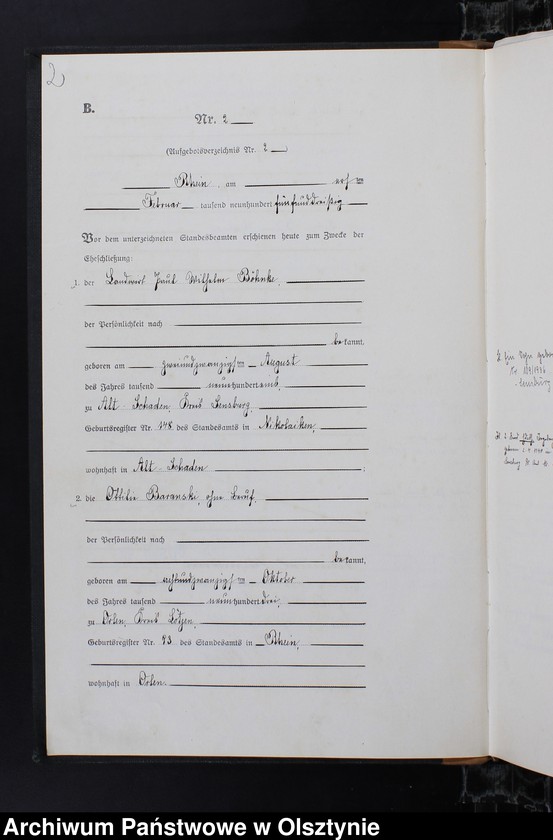 2
B.
Nr. 2
(Aufgebotsverzeichnis Nr. 2
Rhein, am ten
Februar tausend neunhundert fünfunddreißig
Vor dem unterzeichneten Standesbeamten erschienen heute zum Zwecke der
Eheschließung:
1. der Landwirt Paul Wilhelm Böhnke,
der Persönlichkeit nach
be kannt,
geboren am zweiundzwanzigsten August
des Jahres tausend neunhundert
zu Alt-Schaden, Kreis Sensburg,
Geburtsregister Nr. 148 des Standesamts in Nikolaiken,
wohnhaft in Alt-Schaden ;
2. die Ottilie Baranski, ohne Beruf,
der Persönlichkeit nach
be kannt,
geboren am achtundzwanzigsten Oktober
des Jahres tausend neunhundert drei,
zu Orlen, Kreis Lötzen,
Geburtsregister Nr. 93 des Standesamts in Rhein,
wohnhaft in Orlen.
Archiwum Państwowe w Olsztynie